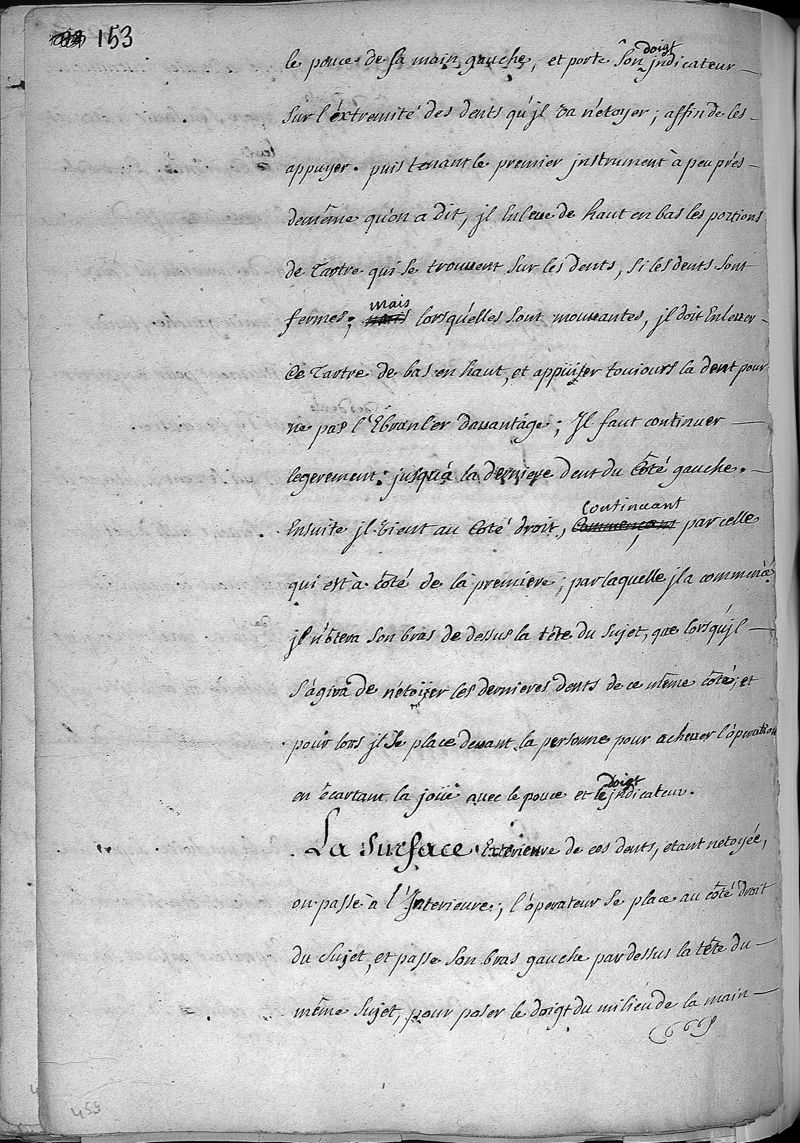 153
le pouce de sa main gauche, et porte son doigt jndicateur
sur l'éxtremité des dents qu'jl va nétoyer; affin de les
appuyer. puis tenant le premier jnstrument à peu prés
demême qu'on a dit, jl Enleue de haut en bas les portions
de Tartre qui se trouuent sur les dents, si les dents sont
fermes; mais lorsqu'elles sont mouuantes, jl doit Enleuer
Ce Tartre de bas en haut, et appüyer toujours la dent pour
ne pas l'Ebranler dauantage; Jl faut continuer
legerement jusqu'à la derniere dent du Côté gauche.
Ensuite jl vient au Coté droit, Continuant par celle
qui est à côté de la premiere; par laquelle jl a commencé
jl n'ôtera son bras de dessus la tête du sujet, que lorsqu'jl
s'ágira de nétoÿer les dernieres dents de ce même côté; et
pour lors jl se place deuant la personne pour acheuer l'opération
en écartant la joüe auec le pouce et le doigt jndicateur.
La surface Exterieure de ces dents, etant netoyée,
on passe à l'Jnterieure; l'óperateur se place au côté droit
du sujet, et passe son bras gauche par dessus la tête du
même sujet, pour poser le doigt du milieu de la main
459